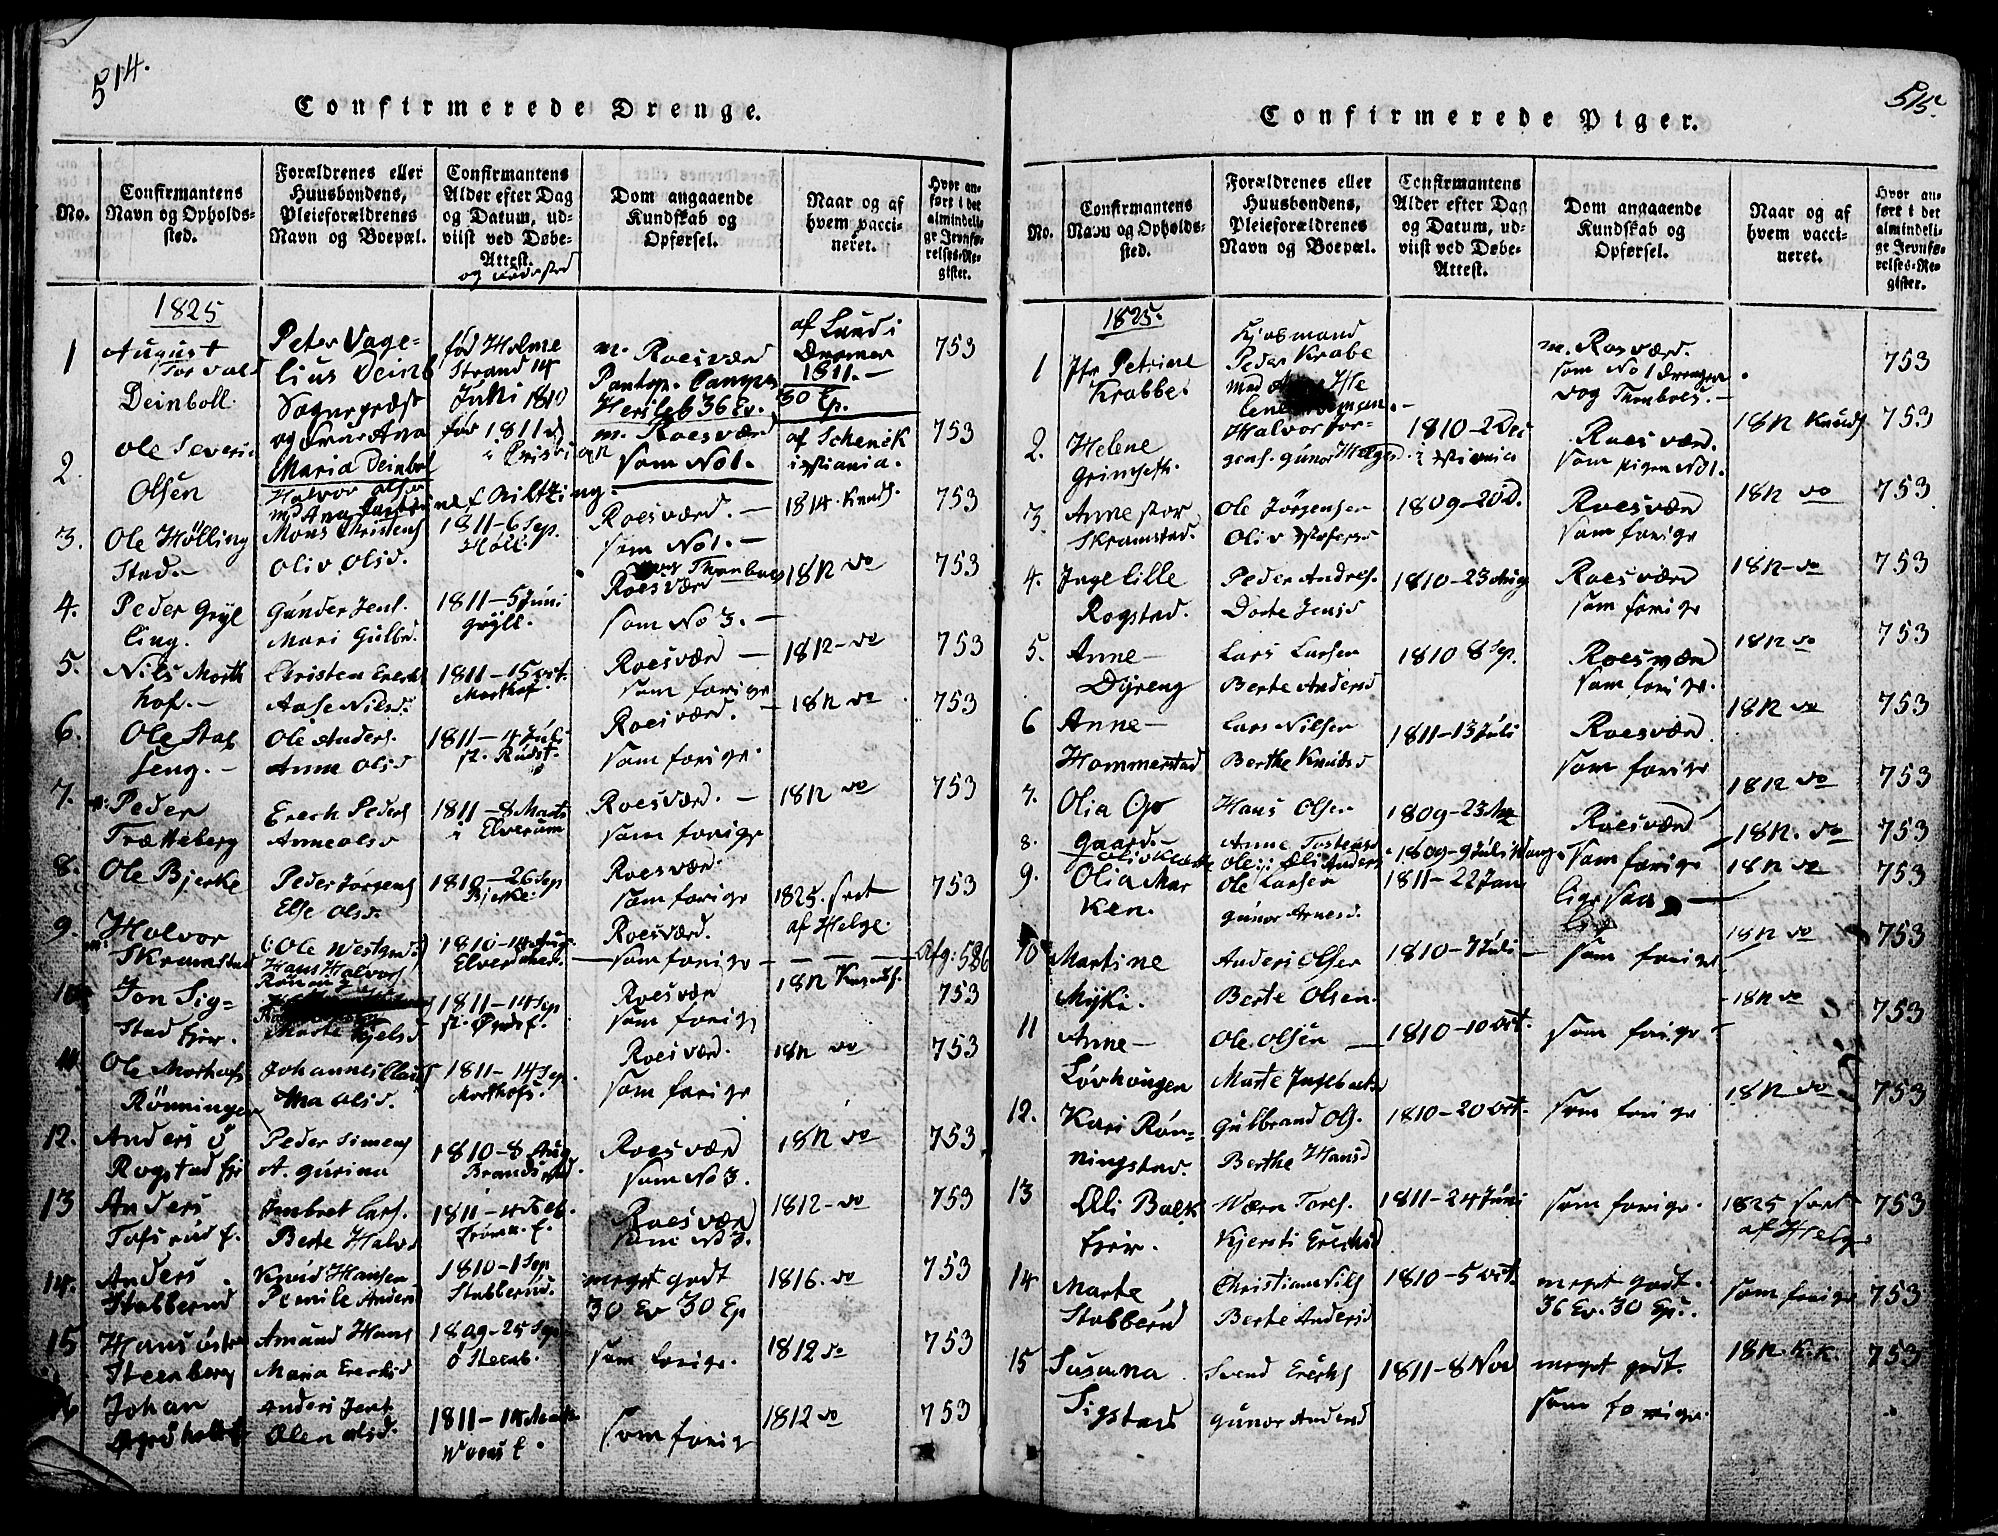 514.
Confirmerede Drenge.
No.
Confirmantens Navn og Opholds-sted.
Forældrenes eller Huusbondens, Pleieforældrenes Navn og Boepæl.
Confirmantens Alder efter Dag og Datum, ud-viist ved Døbe-Attest.
Dom angaaende Kundskab og Opførsel.
Naar og af hvem vacci-neret.
Hvor an-ført i det almindeli-ge Jevnfø-relses-Re-gister.
1825
1 August Deinboll. Peter Deinb Sognepræst og Frue Ana Maria Deinbol født Holme Strand 14 Juni 1810 m. Roesværd 36 Ev. 30 Ep. af Lund i 1811. 753
2. Ole Severin Olsen Halvor Olsen 1811 m. Roesværd som No 1. af Schenck 753
3. Ole Hölling Stad. Mons Christens Oliv Olsd. 1811-6 Sep. Höll. Roesværd. som No 1. 1814. Knuds. 753
4. Peder Gryl ling. Günder Jens. Mari Gulbd. 1811-5 Juni Gryll. Roesværd som No 3. 1812 do 753
5. Nils Morth hof. Christen Erechs Aase Nilsd. 1811-15 oct. Morthof. Roesværd som forige 1812 do 753
6. Ole Staf seng. Ole Anders. Anne Olsd 1811-4 Juli Roesværd. som forige 1812 do 753
7. Peder Trætteberg Erech Peders Anne Olsd 1811-8 Marts i Elverum Roesværd. som forige 1812 do 753
8. Ole Bjerke Peder Jörgens Else Olsd. 1810-26 Sep Bjerke Roesværd. som forige 1825. sret af Helge. 753
9. Halvor Skramstad Ole Westgrd. Hans Halvors 1810-14 Aug. Roesværd. som forige Afg: 586
10. Jon Sig-stad Ejer. Marte Kjelsd 1811-14 Sep Roesværd som forige 1812 Knuds. 753
11. Ole Morthofs Rönningen Johannes Claus Ana Olsd. 1811-14 Sep. Morthofs. Roesværd. som forige 1812 do 753
12. Anders Ö Rogstad Ejer Peder Simens A. Gurina 1810-8 Aug. Roesværd som No 3. 1812 do 753
13 Anders Tofsrud E. Imbret Lars. Berte Halvd 1811-4 Feb. Roesværd som No 3. 1812 do 753
14. Anders Stabberud Knud Hansen Pernile Andersd 1810-1 Sep Stabberud. meget godt 30 Ev 30 Ep 1816. do 753
15 Hans östre Steenberg Amund Hans Maria Erechsd 1809-25 Sep. Ö Steenb. som forige. 1812 do 753
16 Johan Anders Jens Olsd. 1811 som forige 1812 do 753
515.
Confirmerede Piger.
No.
Confirmantens Navn og Opholds-sted.
Forældrenes eller Huusbondens, Pleieforældrenes Navn og Boepæl.
Confirmantens Alder efter Dag og Datum, ud-viist ved Døbe-Attest.
Dom angaaende Kundskab og Opførsel.
Naar og af hvem vacci-neret.
Hvor an-ført i det almindeli-ge Jevnfø-relses-Re-gister.
1825.
1 Petrine Krabbe. Kjøbmand Peder Krabe m. Rosværd. som No 1 Drengen 753
2. Helene Grimseth. Halvor Jör-gens. Gunor 1810-2 Dec Roesværd. som pigen No 1. 1812 Knuds 753
3. Anne stor Skramstad. Ole Jörgensen Oliv 1809-20 D. Roesværd som forige 1812 do 753
4. Inge lille Rogstad. Peder Andres. Dorte Jensd 1810-23 Aug Roesværd som forige 1812 do 753
5. Anne Dyreng Lars Larsen Berte Andersd 1810 8 Sep. Roesværd som forige. 1812 do 753
6 Anne Hammerstad Lars Nilsen Berthe Knudsd 1811-13 Juli Roesværd som forige 1812 do 753
7. Olia Op Gaard. Hans Olsen Anne Tostensd 1809-23 Roesværd som forige 1812 do 753
8. Ole Anders 1809-9 Juli 1812. do 753
9. Olia Mar ken. Ole Larsen Gunor Arnesd. 1811-22 Jan ligesaa 1812 do 753
10 Martine Myki. Anders Olsen Berte Olsen. 1810-7 Juli som forige. 1812 do 753
11 Anne Lövhaugen Ole Olsen Marte Ingebretsd 1810-10 oct. som forige. 1812 do 753
12. Kari Rön-ningstad. Gulbrand Ols. Berthe Hansd 1810-20 oct. som forige 1812 do 753
13 Eli Balk Ejer. Tores. Kjersti Erechsd 1811-24 Juni som forige. 1825 sret af Helge. 753
14 Marte Stabberud Christian Nils Berte Andersd 1810-5 oct. meget godt. 36 Ev. 30 Ep. som forige 753
15 Susana Sigstad Svend Erechs Gunor Andersd 1811-8 Nov meget godt. som forige. 1812. K.K. 753